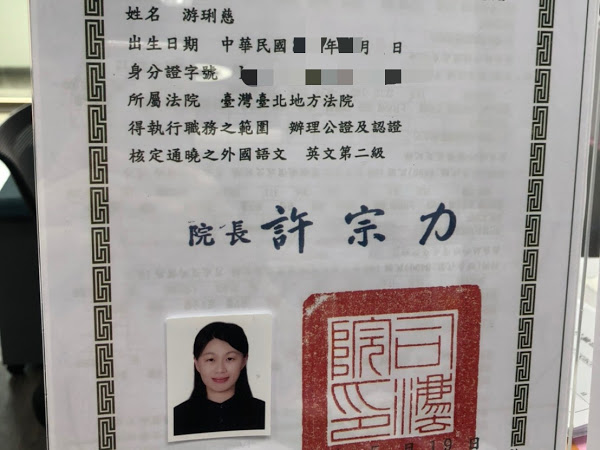 姓名 游琍慈
出生日期 中華民國 年 月 日
身分證字號
所屬法院 臺灣臺北地方法院
得執行職務之範圍 辦理公證及認證
核定通曉之外國語文 英文第二級
院長 許宗力
司法院印
月 19 日